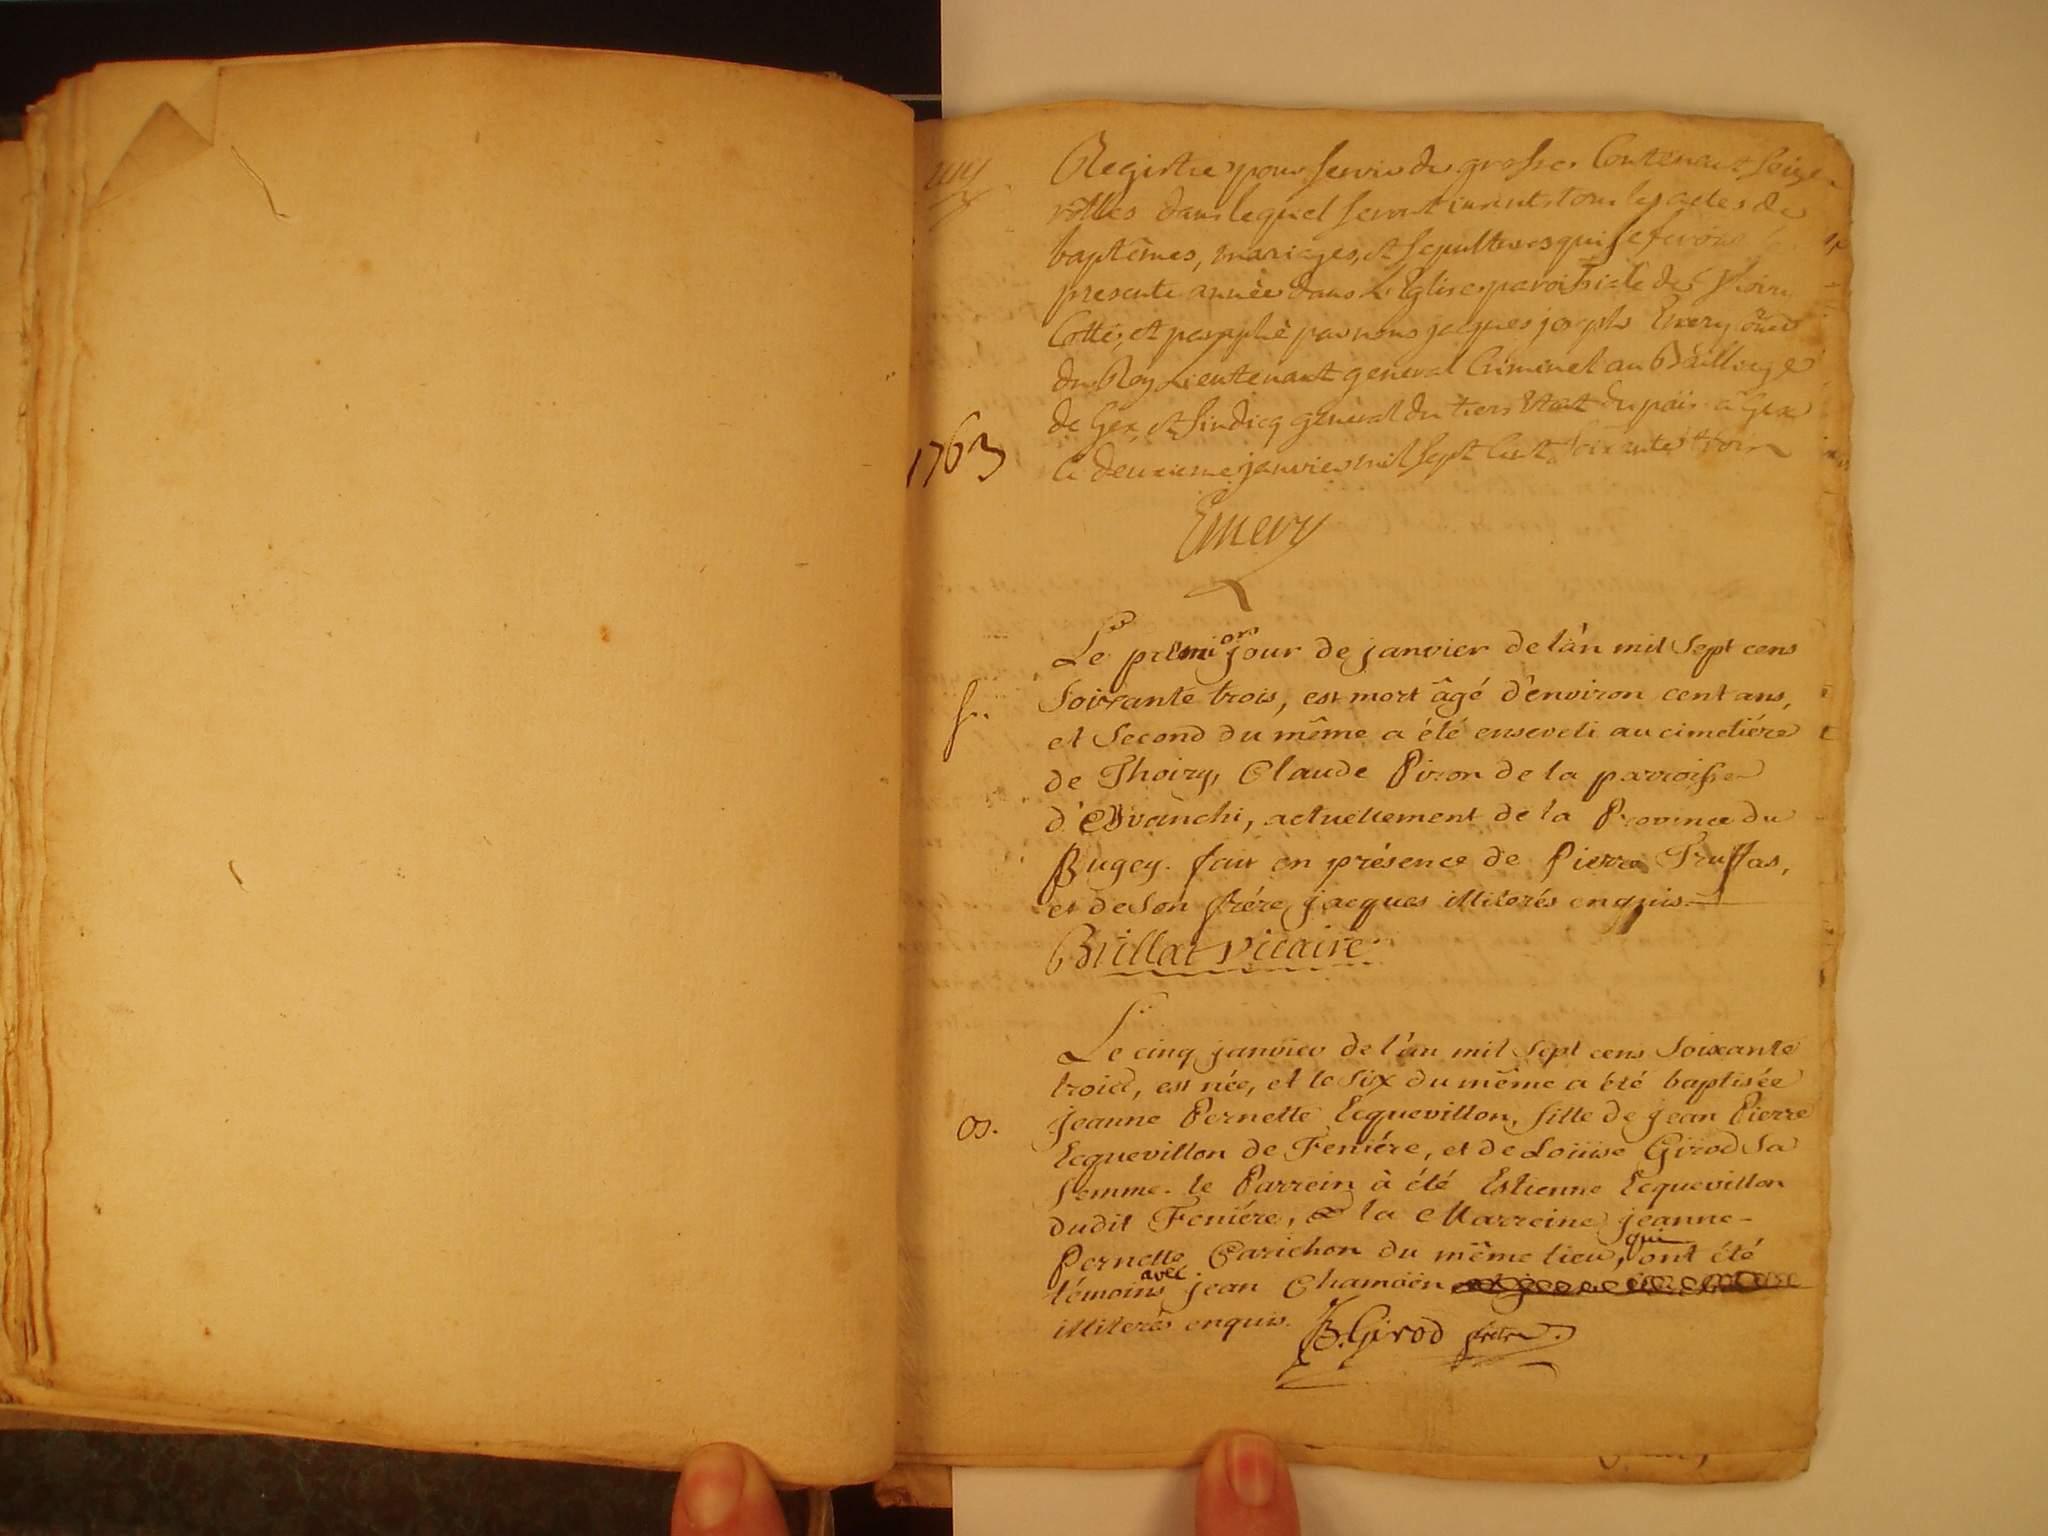 Registre pour servir de grosse Contenant seize
rolles dans lequel seront inserits tous les actes de
baptêmes, mariages, et sepultures qui se feront la
presente année dans L'Eglise paroissiale de Thoiry
Cotté, et paraphé par nous jacques joseph Emery Coner
du Roy Lieutenant general Criminel au Bailliage
de Gex, et sindicq general du tiers Etat du païs a Gex
Ce deuxieme janvier mil sept Cent soixante trois
1763
Emery
Le premier jour de janvier de l'an mil sept cens
S.
Soixante trois, est mort âgé d'environ cent ans,
et second du même a été enseveli au cimetiére
de Thoiry, Claude Piron de la parroisse
actuellement de la Province du
Bugey. fait en présence de Pierre Truffas,
et de son frére jacques illiterés enquis.
Brillat vicaire
Le cinq janvier de l'an mil sept cens soixante
trois, est née, et le six du même a été baptisée
B.
jeanne Pernette Ecquevillon, fille de jean Pierre
Ecquevillon de Feniére, et de Loüise Girod sa
femme. le Parrein à été Estienne Ecquevillon
dudit Feniére, & la Marreine jeanne-
Pernette Parichon du même lieu, qui ont été
témoins avec jean Chamoën
illiterés enquis. JB. Girod prêtre.